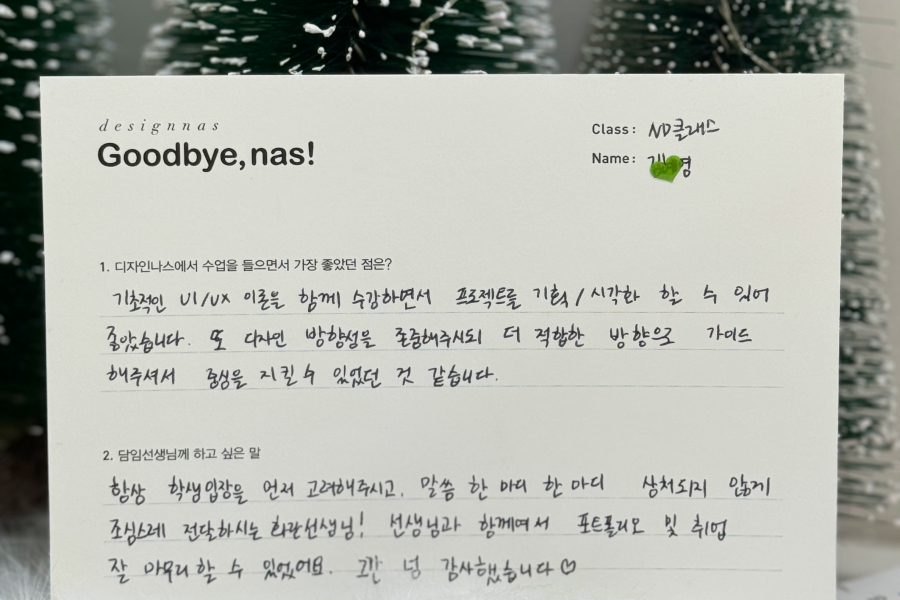 designnas
Goodbye, nas!
Class: ND클래스
Name: 김 영
1. 디자인나스에서 수업을 들으면서 가장 좋았던 점은?
기초적인 UI/UX 이론을 함께 수강하면서 프로젝트를 기획/시각화 할 수 있어
좋았습니다. 또 디자인 방향성을 존중해주시되 더 적합한 방향으로 가이드
해주셔서 중심을 지킬 수 있었던 것 같습니다.
2. 담임선생님께 하고 싶은 말
항상 학생입장을 먼저 고려해주시고, 말씀 한 마디 한 마디 상처되지 않게
조심스레 전달하시는 화란선생님! 선생님과 함께여서 포트폴리오 및 취업
잘 마무리 할 수 있었어요. 그간 넘 감사했습니다♡